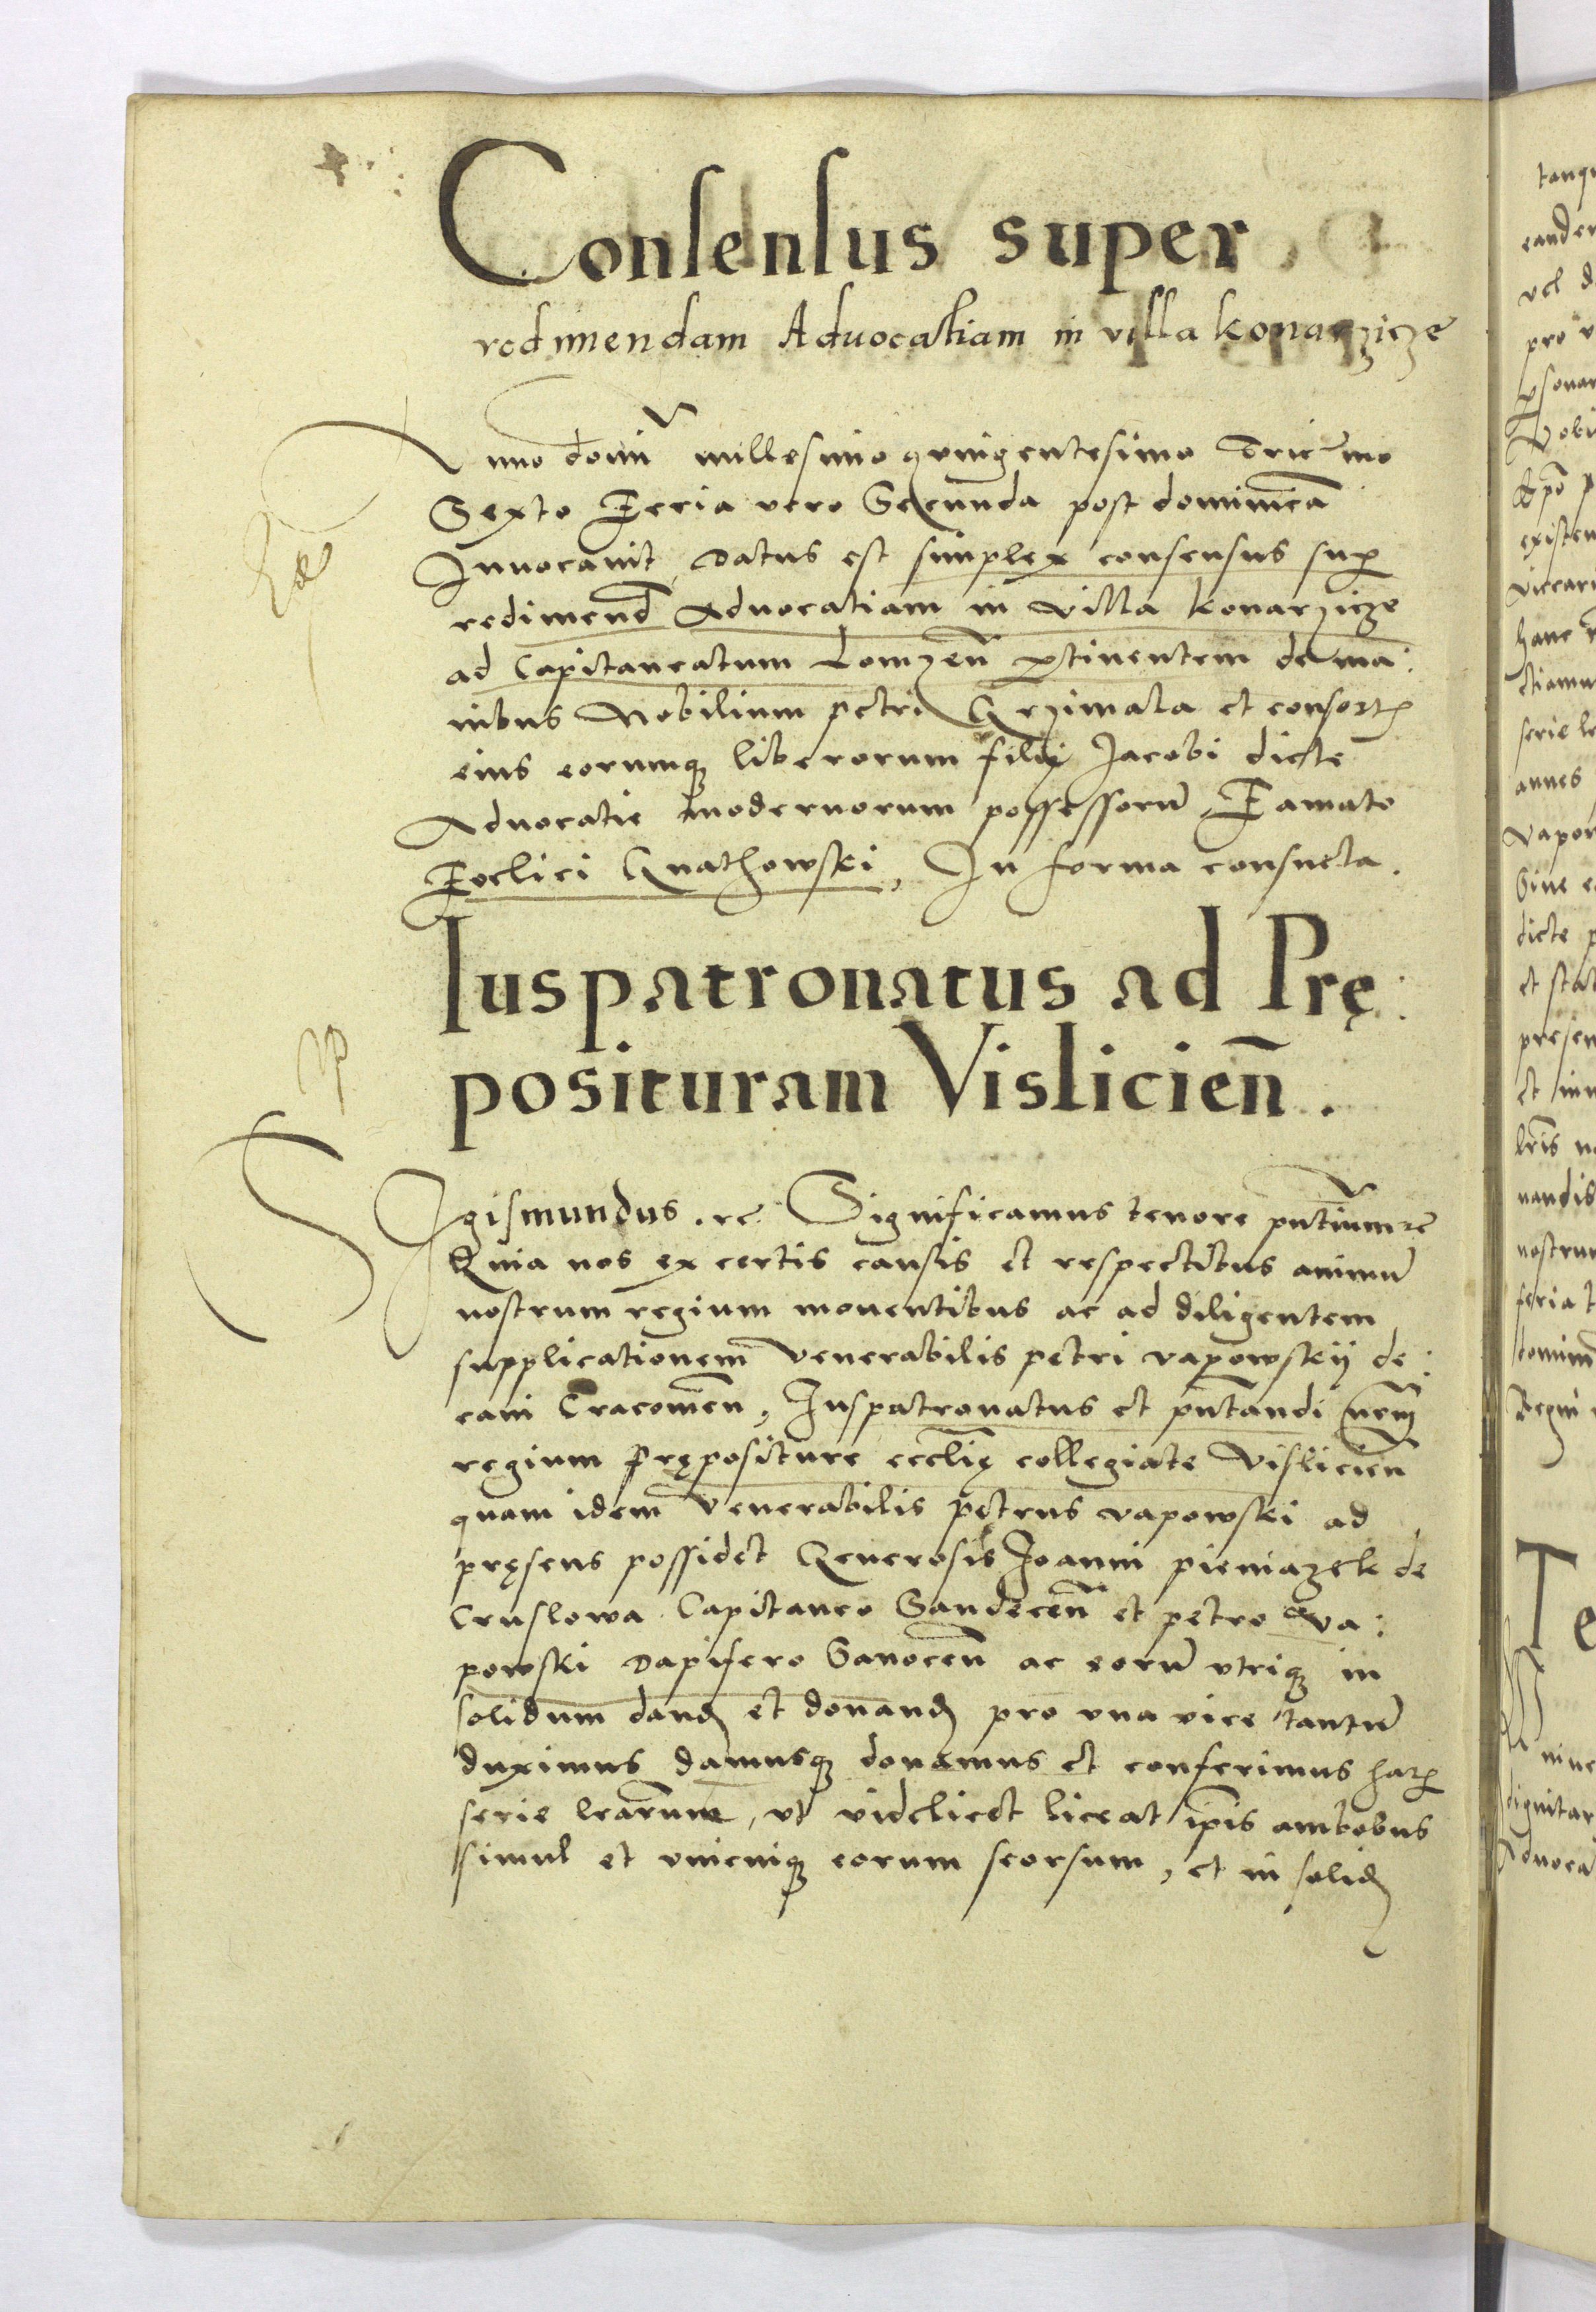 Consensus super
redimendam Advocatiam in villa Konarzicze
Anno domini millesimo quingentesimo Tricesimo
Sexto Feria vero Secunda post dominicā
Invocavit, Datus est simplex consensus sup
redimend Advocatiam in villa Konarzicze
ad Capitaneatum Lomzeñ ptinentem de ma:
nibus Nobilium petri Grzimala et consort
eius eorumq liberorum filij Jacobi dicte
Advocatie modernorum possessorū Famato
Foelici Gnathowski, In forma consueta.
Iuspatronatus ad Prę:
posituram Vislicieñ.
Sigismundus. rc. Significamus tenore pntium rc
Quia nos ex certis causis et respectibus animū
nostrum regium moventibus ac ad diligentem
supplicationem Venerabilis petri vapowskij de:
cani Cracovien, Iuspatronatus et pntandi nrm
regium Pręposicture ecclię collegiate Vislicień
quam idem Venerabilis petrus vapowski ad
pręsens possidet Generosis Joanni pieniazek de
Cruslowa Capitaneo Sandeceñ et petro va:
powski Dapifero Sanoceñ ac eorū utriq in
solidum dand et donand pro una vice tantū
duximus damusq donamus et conferimus har
serie lrarum, ut videlicet liceat ipis ambobus
simul et unicuiq eorum seorsum, et in solid